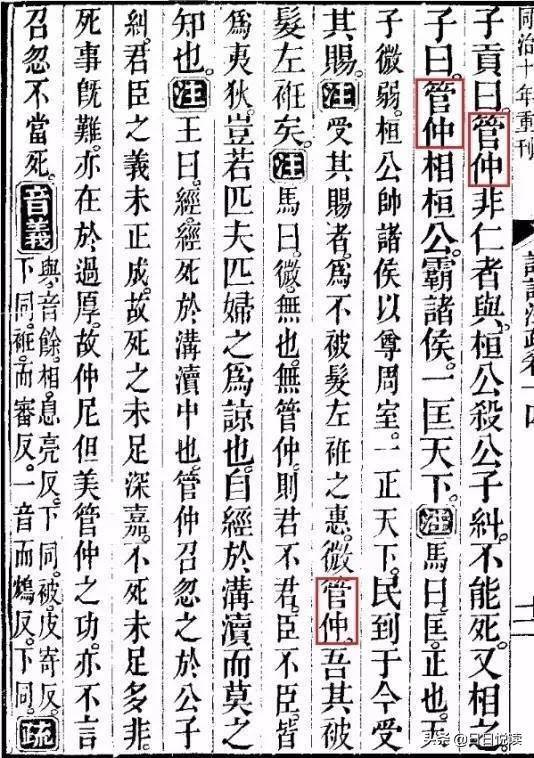 同治十年重刊
子貢曰。管仲非仁者與。桓公殺公子糾。不能死。又相之。
子曰。管仲相桓公。霸諸侯。一匡天下。注馬曰。匡。正也。天
子微弱。桓公帥諸侯以尊周室。一正天下。民到于今受
其賜。注受其賜者。爲不被髮左衽之惠。微管仲。吾其被
髮左衽矣。注馬曰。微。無也。無管仲。則君不君。臣不臣。皆
爲夷狄。豈若匹夫匹婦之爲諒也。自經於溝瀆而莫之
知也。注王曰。經。經死於溝瀆中也。管仲召忽之於公子
糾。君臣之義未正成。故死之未足深嘉。不死未足多非。
死事旣難。亦在於過厚。故仲尼但美管仲之功。亦不言
召忽不當死。音義
與音餘。相。息亮反。下同。被。皮寄反。
下同。衽。而審反。一音而鴆反。下同。疏
头条 @日日说读